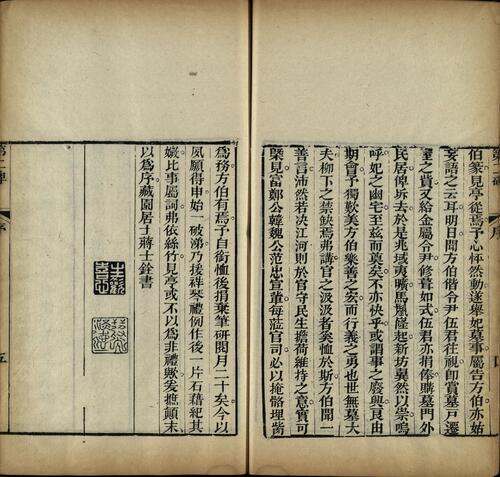 伯篆見亭從焉予心怦然動遂舉妃墓事屬告方伯方伯亦如
妄語之云耳明日聞方伯偕令尹伍君往視即賞墓戶遷
室之貲又給金屬令尹修葺如式伍君亦捐俸購墓門外
民居俾拆去於是兆域夷曠馬鬣隆起新坊翼然以崇嗚
呼妃之幽宅至茲而奠矣不亦快乎或謂事之廢興良由
期會予獨歎美方伯樂善之宏而行義之勇也世無墓大
夫柳下之禁缺焉弗講官之汲汲者矣恤於斯方伯聞一
善言沛然若決江河則於官守民生擔荷維持之意實可
槩見富鄭公韓魏公范忠宣輩每蒞官司必以掩骼埋胔
為務方伯有焉予自銜恤後捐棄筆研閱月二十矣今以
夙願得申始一破涕乃援祥琴禮例作後一片石藉紀其
嫩比事屬詞弗依絲竹見亭或不以為非禮歟爰摭顛末
以為序藏園居士蔣士銓書
第二碑
序
五
第二碑
序
四